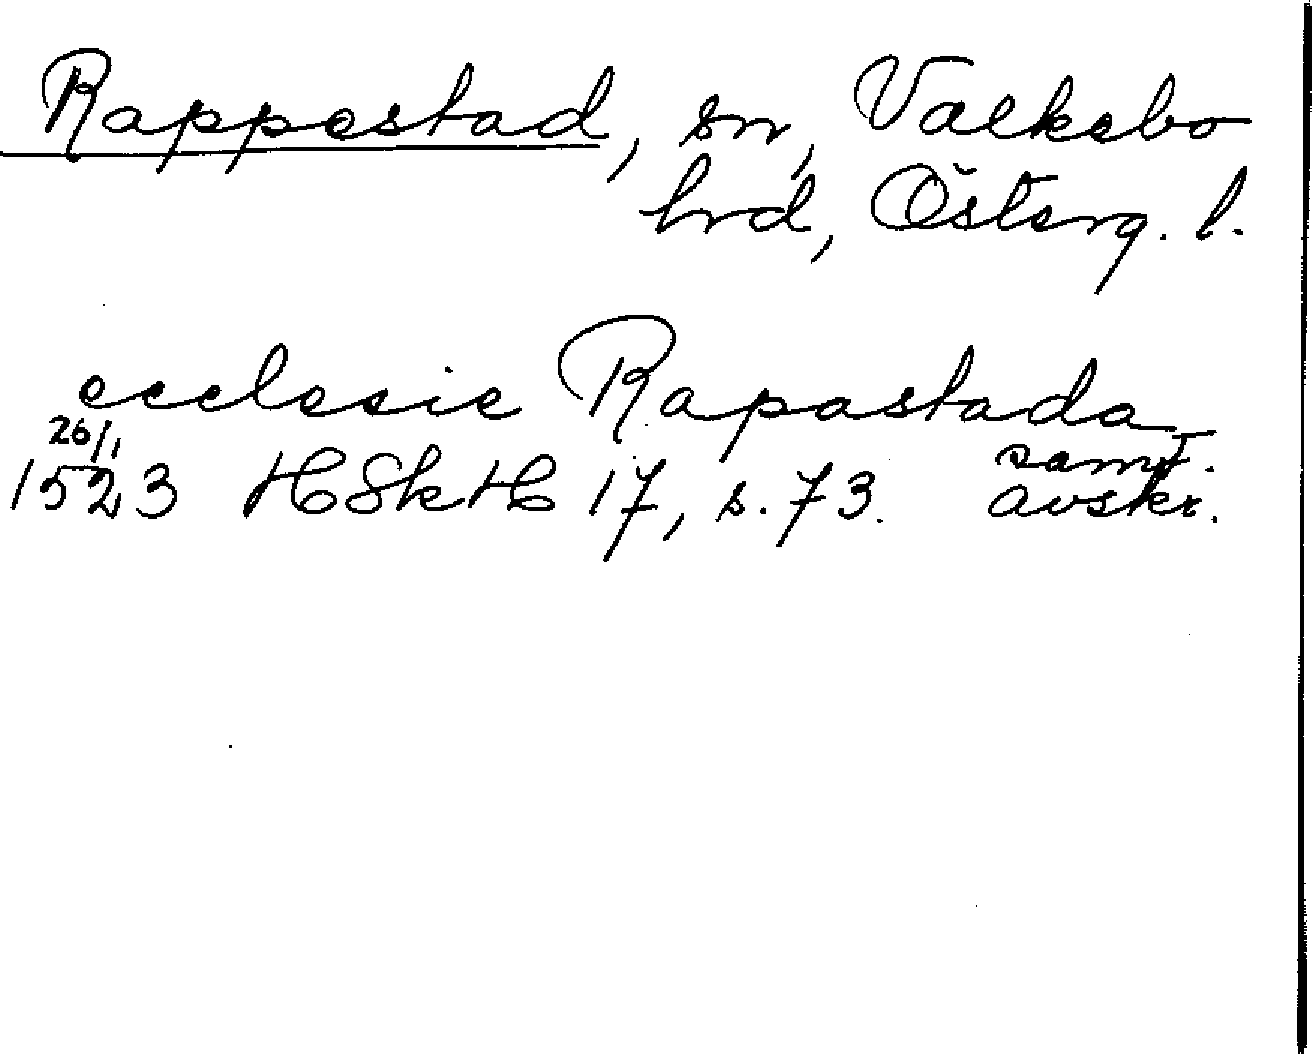 Rappestad, sn, Valkebo
hrd, Österg. l.
ecclesie Rapastada
26/1
1523 HSkH 17, s. 73. samt. avskr.